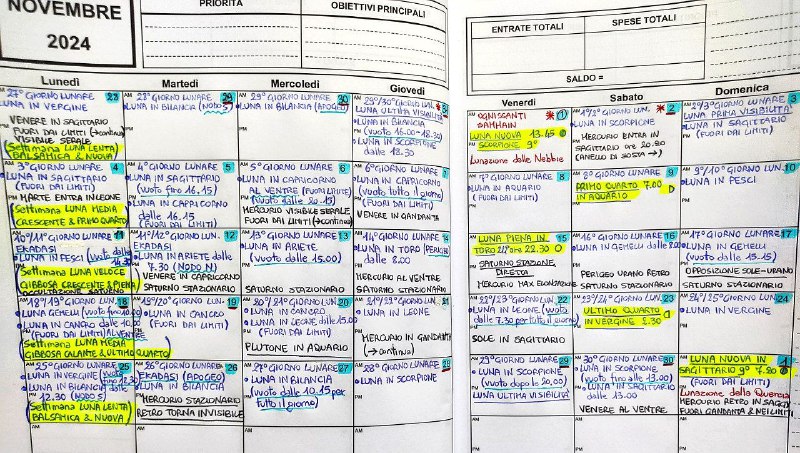 NOVEMBRE
2024
PRIORITÀ
OBIETTIVI PRINCIPALI
ENTRATE TOTALI
SPESE TOTALI
SALDO =
Lunedì
Martedì
Mercoledì
Giovedì
Venerdì
Sabato
Domenica
27° GIORNO LUNARE 28
LUNA IN VERGINE
VENERE IN SAGITTARIO
FUORI DAI LIMITI (→continua)
VISIBILE SERALE
(Settimana LUNA LENTA)
BALSAMICA & NUOVA
28° GIORNO LUNARE 29
LUNA IN BILANCIA (NODO S)
29° GIORNO LUNARE 30
LUNA IN BILANCIA (APOGEO)
29/30° GIORNO LUN.
LUNA ULTIMA VISIBILITÀ
LUNA IN BILANCIA
(vuoto 16.00-18.30)
LUNA IN SCORPIONE
dalle 18.30
OGNISSANTI 1
SAMHAIN
LUNA NUOVA 13.45
SCORPIONE 9°
Lunazione delle Nebbie
1°/2° GIORNO LUN. 2
LUNA IN SCORPIONE
MERCURIO ENTRA IN
SAGITTARIO ore 20.20
(ANELLO DI SOSTA →)
2°/3° GIORNO LUNARE 3
LUNA PRIMA VISIBILITÀ
LUNA IN SAGITTARIO
(FUORI DAI LIMITI)
3° GIORNO LUNARE 4
LUNA IN SAGITTARIO
(FUORI DAI LIMITI)
MARTE ENTRA IN LEONE
(Settimana LUNA MEDIA
CRESCENTE & PRIMO QUARTO)
4° GIORNO LUNARE 5
LUNA IN SAGITTARIO
(vuoto fino 16.15)
LUNA IN CAPRICORNO
dalle 16.15
(FUORI DAI LIMITI)
5° GIORNO LUNARE 6
LUNA IN CAPRICORNO
AL VENTRE (FUORI LIMITI)
(vuoto dalle 20.15)
MERCURIO VISIBILE SERALE
FUORI DAI LIMITI (→continua)
6° GIORNO LUNARE 7
LUNA IN CAPRICORNO
(vuoto tutto il giorno)
(FUORI DAI LIMITI)
VENERE IN GANDANTA
7° GIORNO LUNARE 8
LUNA IN AQUARIO
(FUORI DAI LIMITI)
8° GIORNO LUNARE 9
PRIMO QUARTO 7.00
IN AQUARIO
9°/10° GIORNO LUNARE 10
LUNA IN PESCI
10°/11° GIORNO LUNARE 11
EKADASI
LUNA IN PESCI (vuoto dalle
(Settimana LUNA VELOCE
GIBBOSA CRESCENTE & PIENA)
OCCULTAZIONE SATURNO
12° GIORNO LUN. 12
EKADASI
LUNA IN ARIETE dalle
7.30 (NODO N)
VENERE IN CAPRICORNO
SATURNO STAZIONARIO
13° GIORNO LUNARE 13
LUNA IN ARIETE
(vuoto dalle 15.00)
SATURNO STAZIONARIO
14° GIORNO LUNARE 14
LUNA IN TORO (PERIGEO)
dalle 8.00
MERCURIO AL VENTRE
SATURNO STAZIONARIO
LUNA PIENA IN 15
TORO 24° ore 22.30
SATURNO STAZIONE
DIRETTA
MERCURIO MAX ELONGAZIONE
16° GIORNO LUNARE 16
LUNA IN GEMELLI dalle 8.00
PERIGEO URANO RETRO
SATURNO STAZIONARIO
17° GIORNO LUNARE 17
LUNA IN GEMELLI
(vuoto dalle 15.15)
OPPOSIZIONE SOLE-URANO
SATURNO STAZIONARIO
18°/19° GIORNO LUNARE 18
LUNA GEMELLI (vuoto fino 10.00)
LUNA IN CANCRO dalle 10.00
(FUORI DAI LIMITI) AL VENTRE
(Settimana LUNA MEDIA
GIBBOSA CALANTE & ULTIMO QUARTO)
19°/20° GIORNO LUN. 19
LUNA IN CANCRO
(FUORI DAI LIMITI)
20°/21° GIORNO LUNARE 20
LUNA IN CANCRO
LUNA IN LEONE dalle 15.00
(FUORI DAI LIMITI)
PLUTONE IN AQUARIO
21°/22° GIORNO LUNARE 21
LUNA IN LEONE
MERCURIO IN GANDANTA
(→continua)
22°/23° GIORNO LUNARE 22
LUNA IN LEONE (vuoto
dalle 7.30 per tutto il giorno)
SOLE IN SAGITTARIO
23°/24° GIORNO LUNARE 23
ULTIMO QUARTO
IN VERGINE 2.30
24°/25° GIORNO LUNARE 24
LUNA IN VERGINE
25° GIORNO LUNARE 25
LUNA IN VERGINE (vuoto fino 12.30)
LUNA IN BILANCIA dalle
12.30 (NODO S)
(Settimana LUNA LENTA)
BALSAMICA & NUOVA
26° GIORNO LUNARE 26
EKADASI (APOGEO)
LUNA IN BILANCIA
MERCURIO STAZIONARIO
RETRO TORNA INVISIBILE
27° GIORNO LUNARE 27
LUNA IN BILANCIA
(vuoto dalle 10.15 per
tutto il giorno)
28° GIORNO LUNARE 28
LUNA IN SCORPIONE
29° GIORNO LUNARE 29
LUNA IN SCORPIONE
(vuoto dopo le 20.00)
LUNA ULTIMA VISIBILITÀ
30° GIORNO LUNARE 30
LUNA IN SCORPIONE
(vuoto fino alle 13.00)
LUNA IN SAGITTARIO
dalle 13.00
VENERE AL VENTRE
LUNA NUOVA IN 1
SAGITTARIO 9° 7.20
(FUORI DAI LIMITI)
Lunazione della Quercia
MERCURIO RETRO IN SAGIT
FUORI GANDANTA & NEI LIMITI